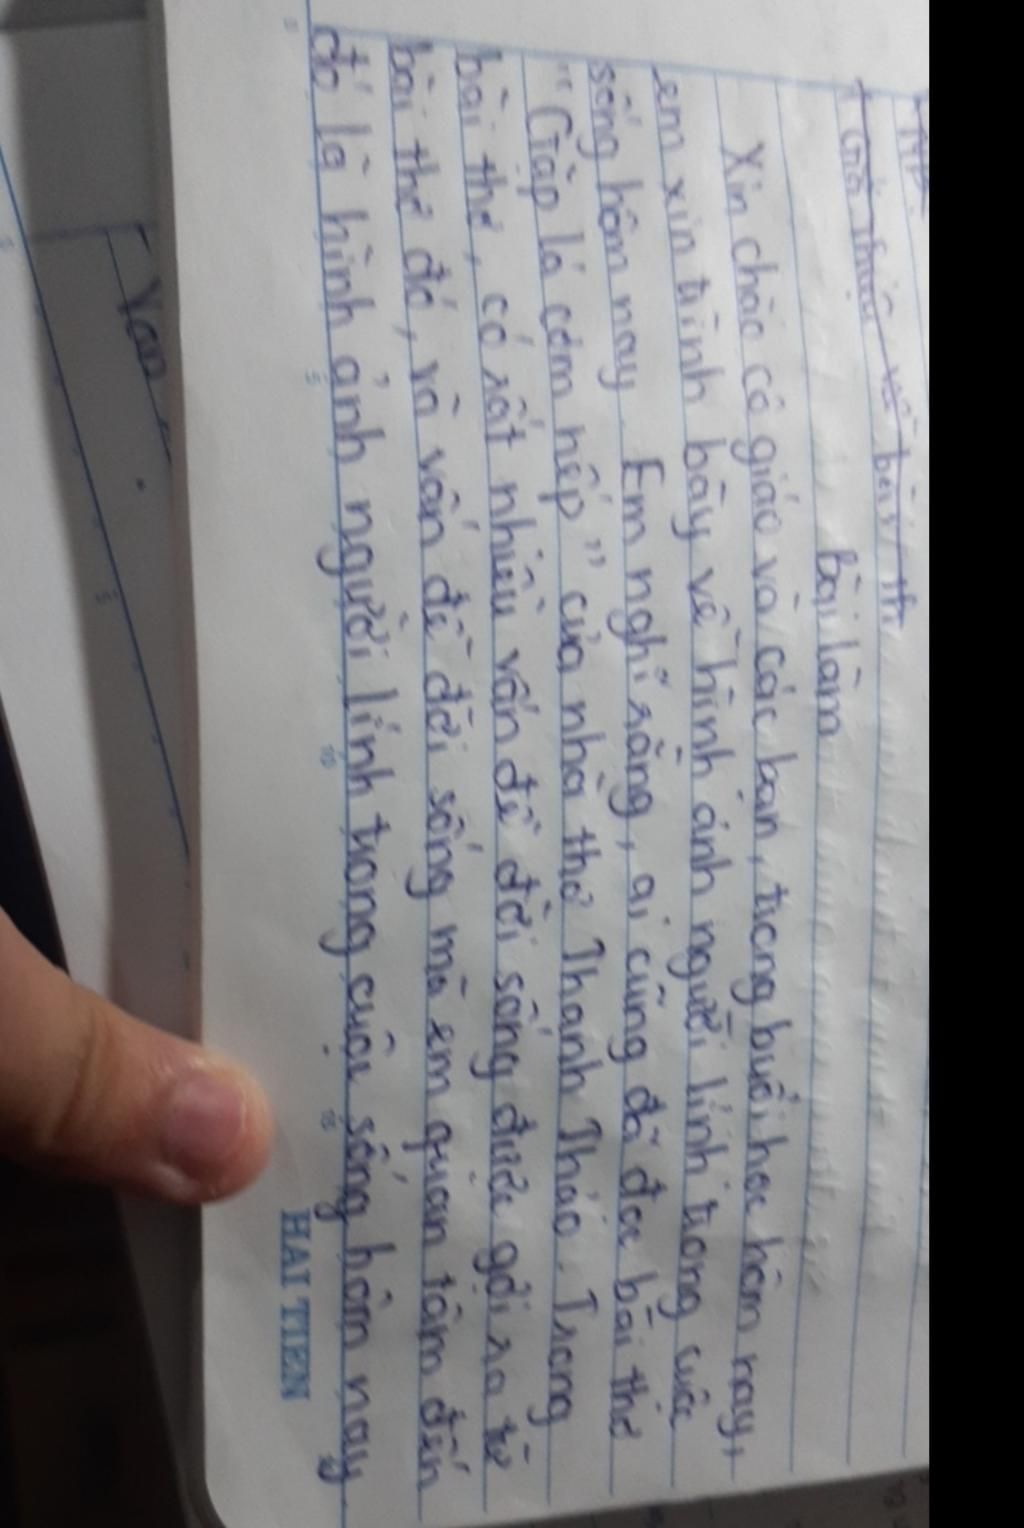 Bài làm
Xin chào cô giáo và các bạn, trong buổi học hôm nay,
em xin trình bày về hình ảnh người lính trong cuộc
sống hôm nay. Em nghĩ rằng, ai cũng đã đọc bài thơ
"Gặp lá cơm nếp" của nhà thơ Thanh Thảo. Trong
bài thơ, có rất nhiều vấn đề đời sống được gợi ra từ
bài thơ đó, và vấn đề đời sống mà em quan tâm đến
đó là hình ảnh người lính trong cuộc sống hôm nay
HẢI TIẾN